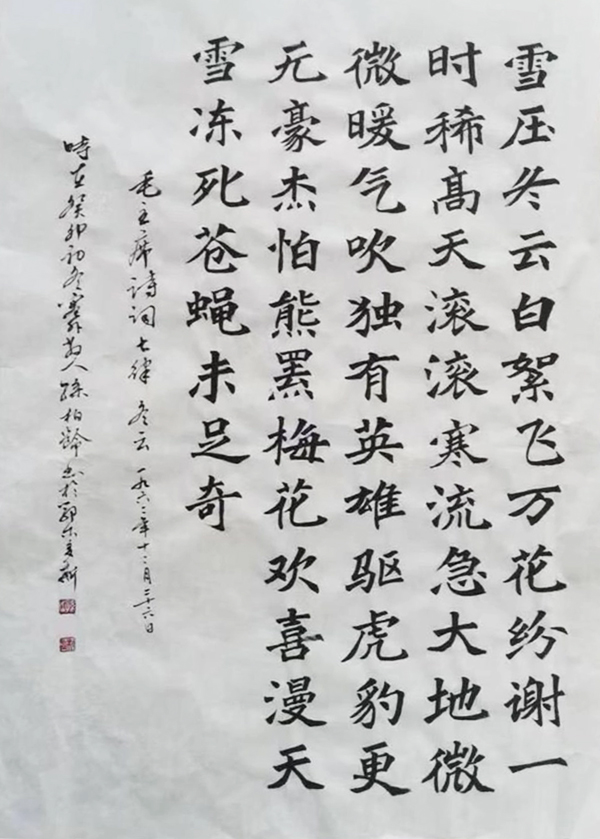 雪压冬云白絮飞万花纷谢一
时稀高天滚滚寒流急大地微
微暖气吹独有英雄驱虎豹更
无豪杰怕熊罴梅花欢喜漫天
雪冻死苍蝇未足奇
毛主席诗词七律 冬云 一九六二年十二月二十六日
時在癸卯初冬 人孫柏齡 於